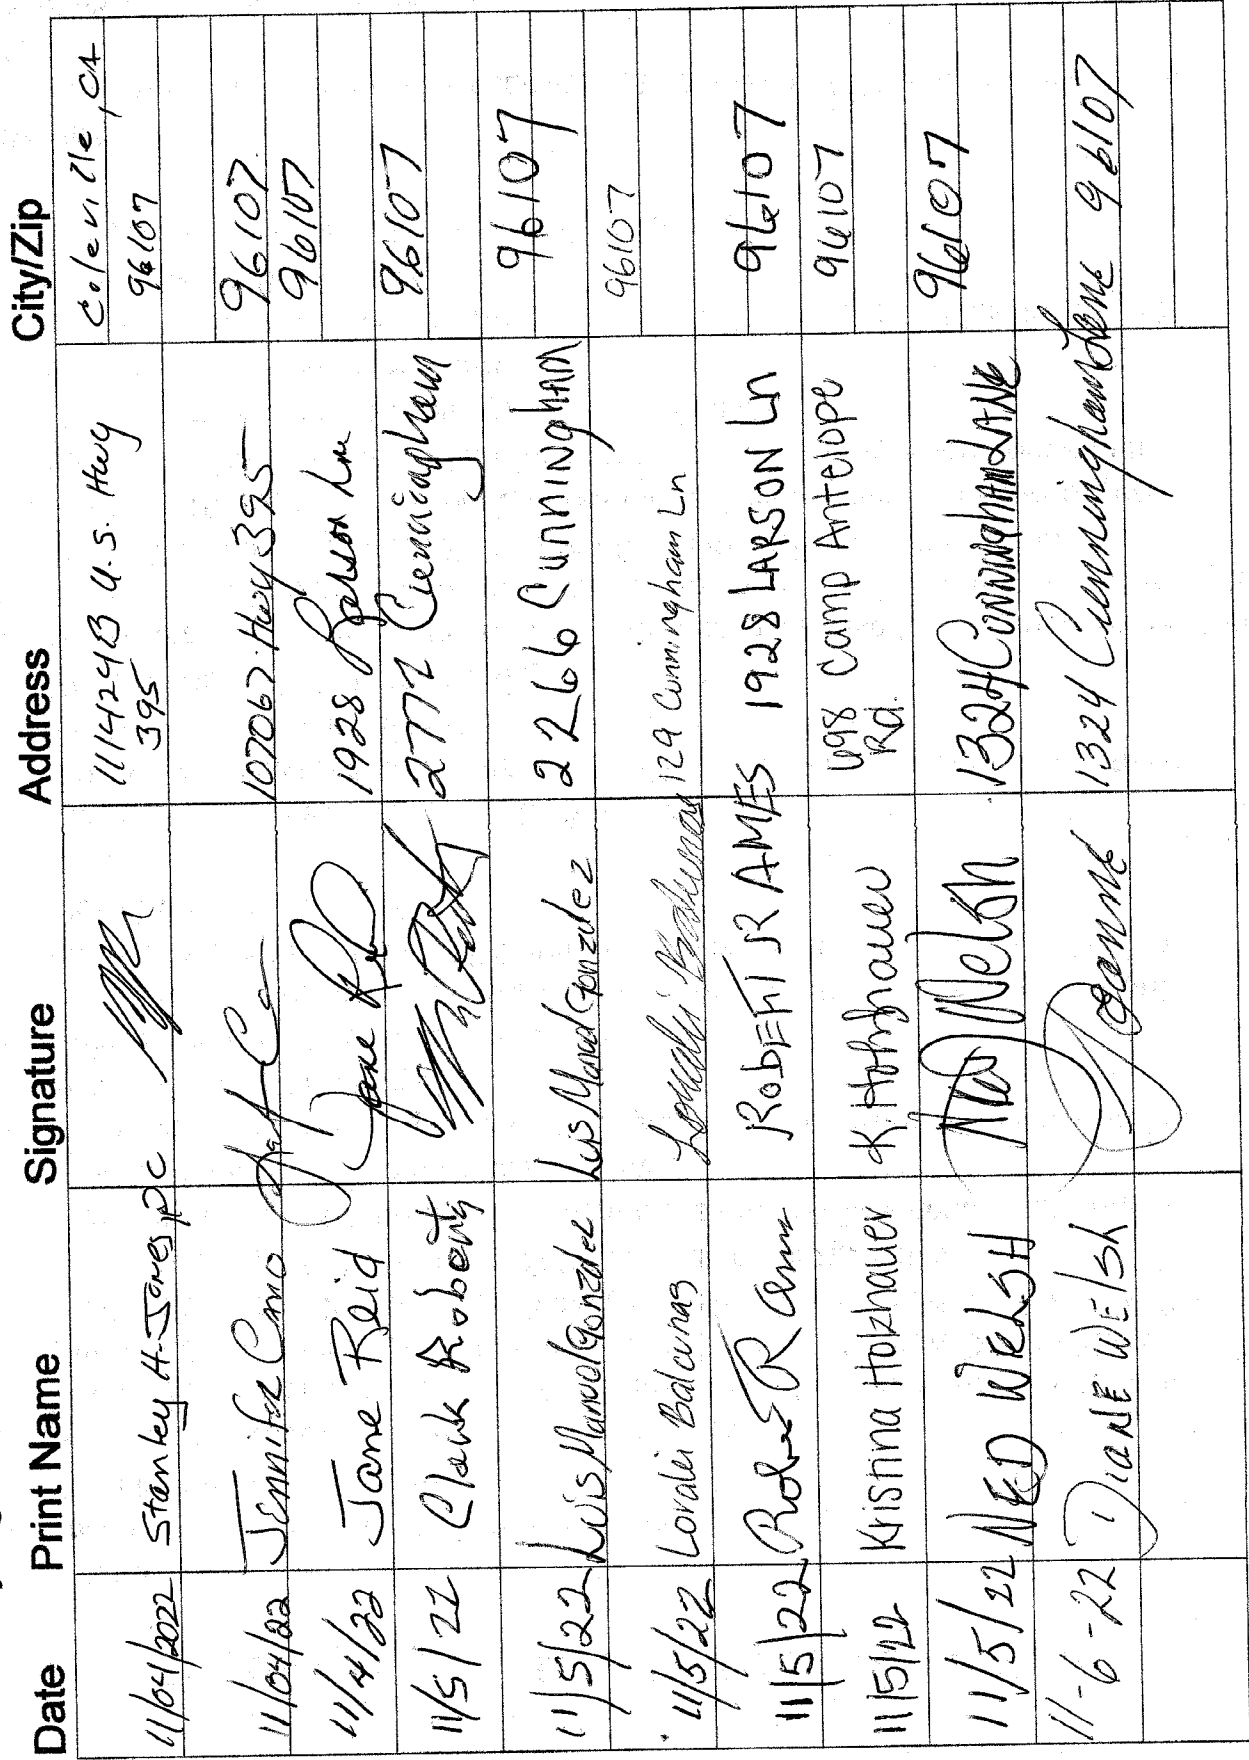 Date Print Name Signature Address City/Zip
11/04/2022 Stanley H. Jones, DC 111424B U.S. Hwy Coleville, CA
395 96107
11/04/22 Jennifer 107067 Hwy 395 96107
11/4/22 Jane Reid Jane 1928 Larson Ln 96107
11/5/22 Clark Roberts 2772 Cunningham 96107
11/5/22 Luis Manuel Gonzalez Luis Manuel Gonzalez 2266 Cunningham 96107
11/5/22 Loralei 129 Cunningham Ln 96107
11/5/22 Robert R Ames ROBERT R AMES 1928 LARSON Ln 96107
11/5/22 Krisinna Holzhauer K. Holzhauer 698 Camp Antelope 96107
Rd.
11/5/22 NED WELSH Ned Welsh 1324 Cunningham LANE 96107
11-6-22 DIANE WElsh 1324 Cunningham Lane 96107